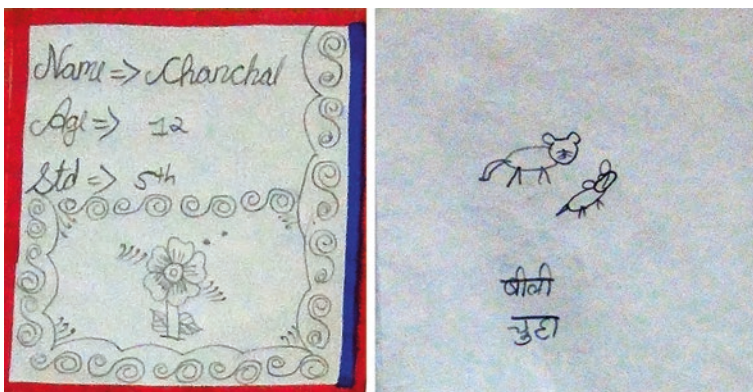 Name => Chanchal
Age => 12
Std => 5th
बीली
चुहा